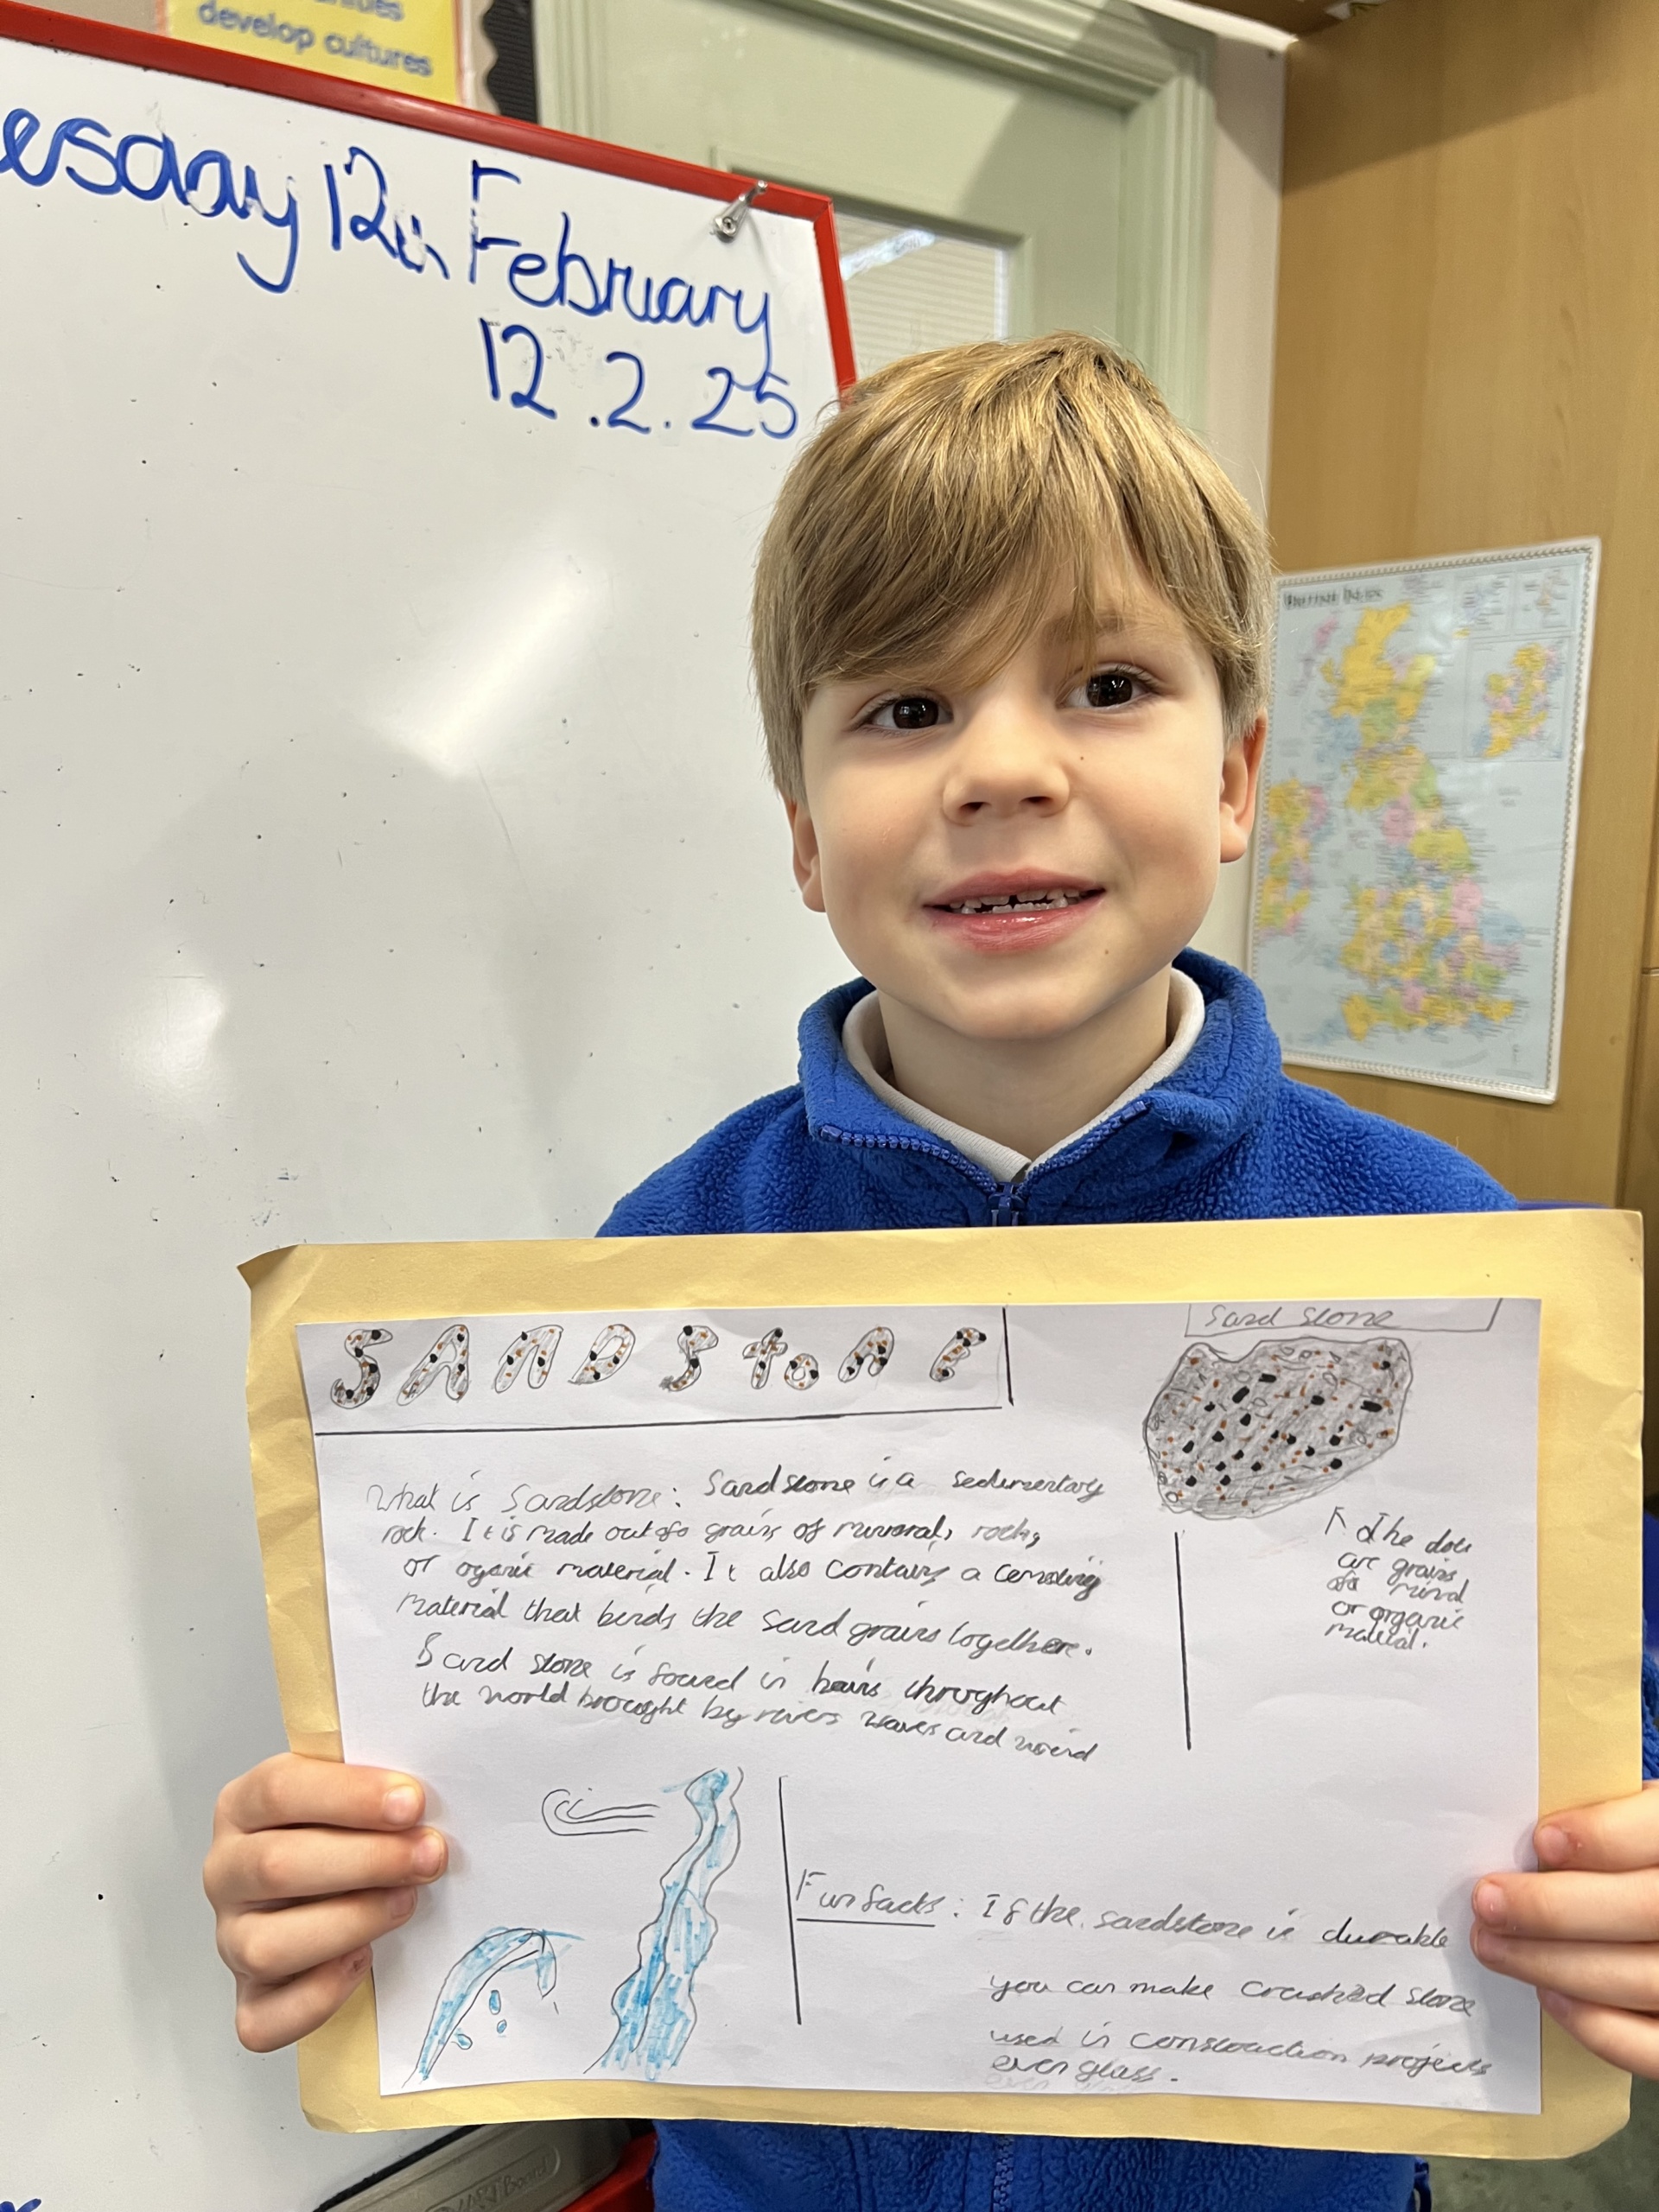 develop cultures
esday 12th February
12.2.25
SANDStoNE
Sand stone
What is Sandstone: Sandstone is a sedimentary
rock. It is made out of grains of mineral, rock,
or oganic material. It also contains a cementing
material that binds the sand grains together.
Sand stone is found in throughout
the world brought by rivers waves and wind
↑ The dots
are grains
of minral
or organic
material.
Fun facts: If the sandstone is durable
you can make crushed stone
used in construction projects
even glass.
British Isles